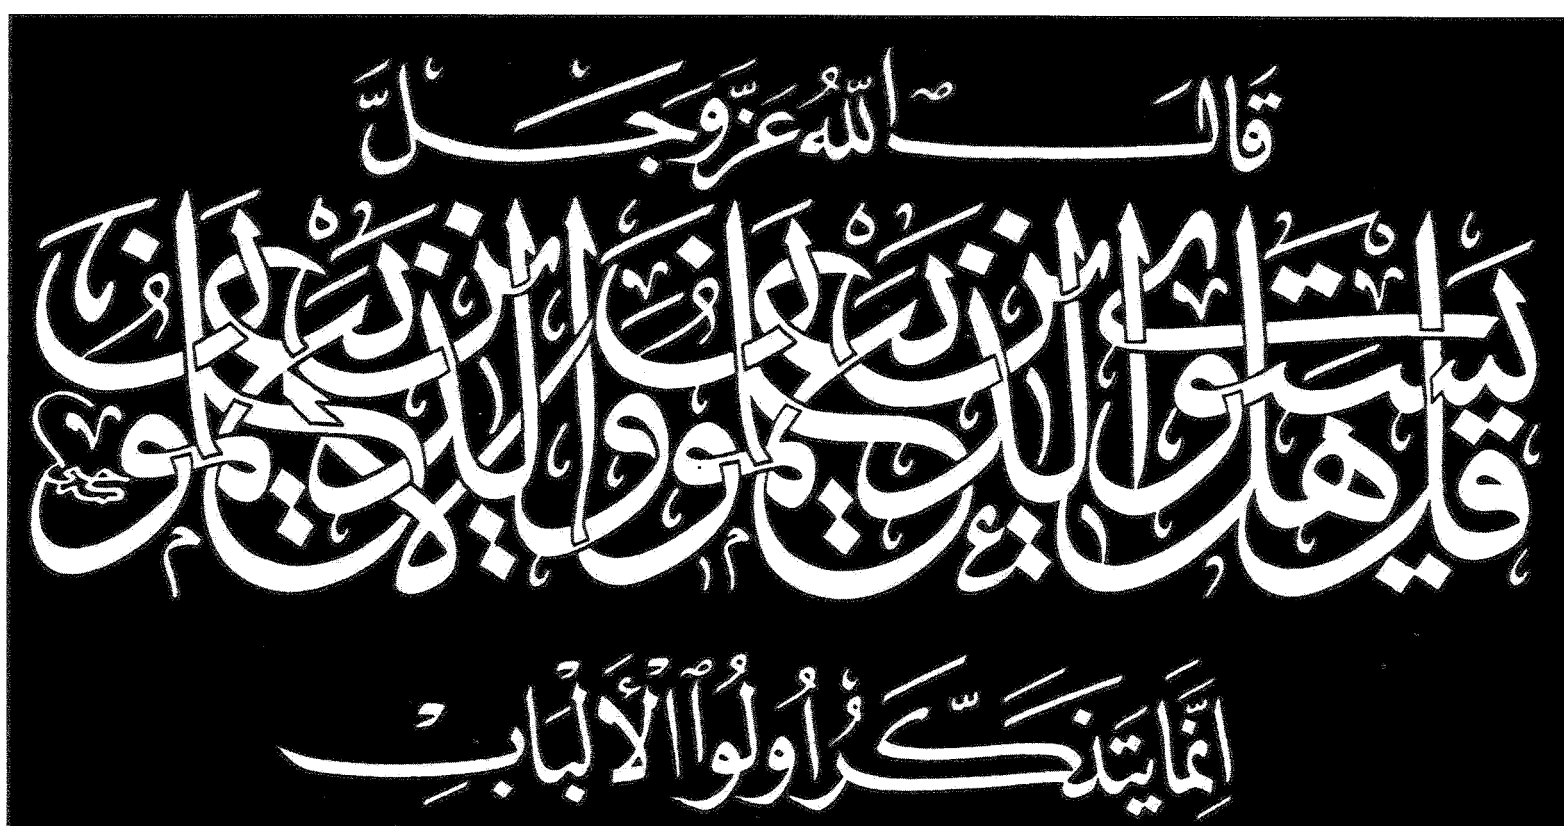 قَالَ ٱللّٰهُ عَزَّ وَجَلَّ
قل هل يستوى الذين يعلمون والذين لا يعلمون
اِنَّمَا يَتَذَكَّرُ اُولُوا ٱلْأَلْبَابِ